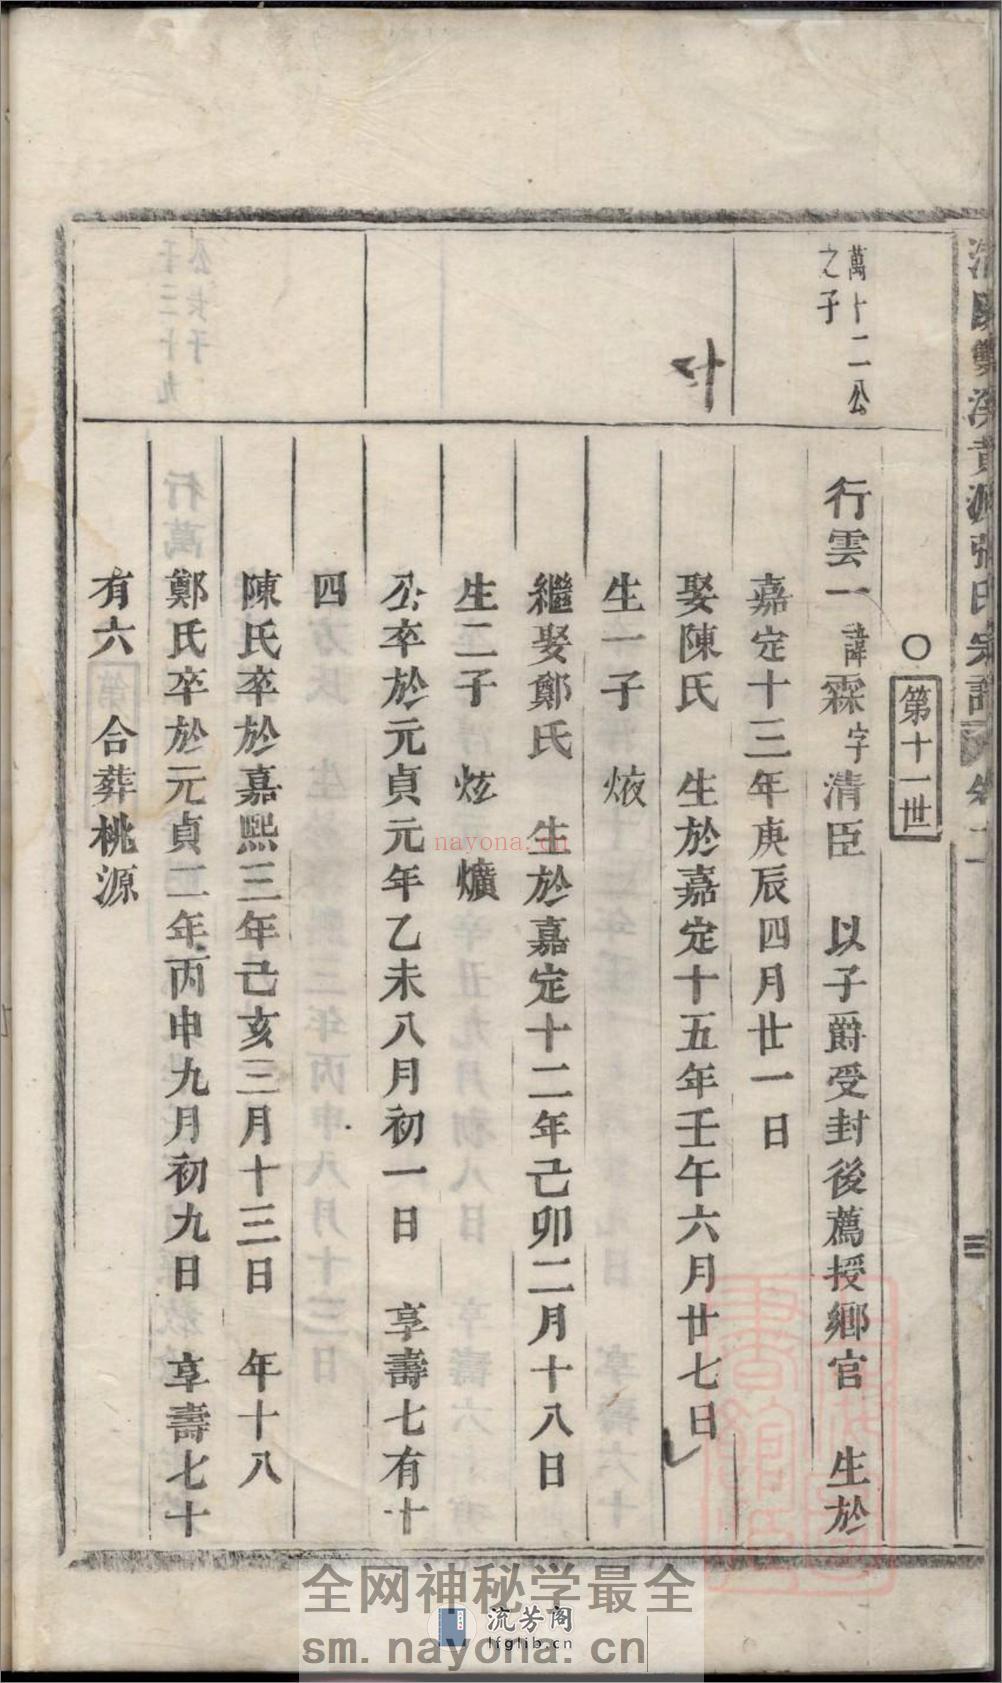 浦陽雙溪黃源張氏宗譜 卷二
三
〇第十一世
萬十二公
之子
行雲一諱霖字清臣 以子爵受封後薦授鄉官 生於
嘉定十三年庚辰四月廿一日
娶陳氏 生於嘉定十五年壬午六月廿七日
生一子 焲
繼娶鄭氏 生於嘉定十二年己卯二月十八日
生二子 炫 爌
公卒於元貞元年乙未八月初一日 享壽七有十
四
陳氏卒於嘉熙三年己亥三月十三日 年十八
鄭氏卒於元貞二年丙申九月初九日 享壽七十
有六 合葬桃源
nayona.cn
全网神秘学最全
流芳阁
lfglib.cn
sm.nayona.cn